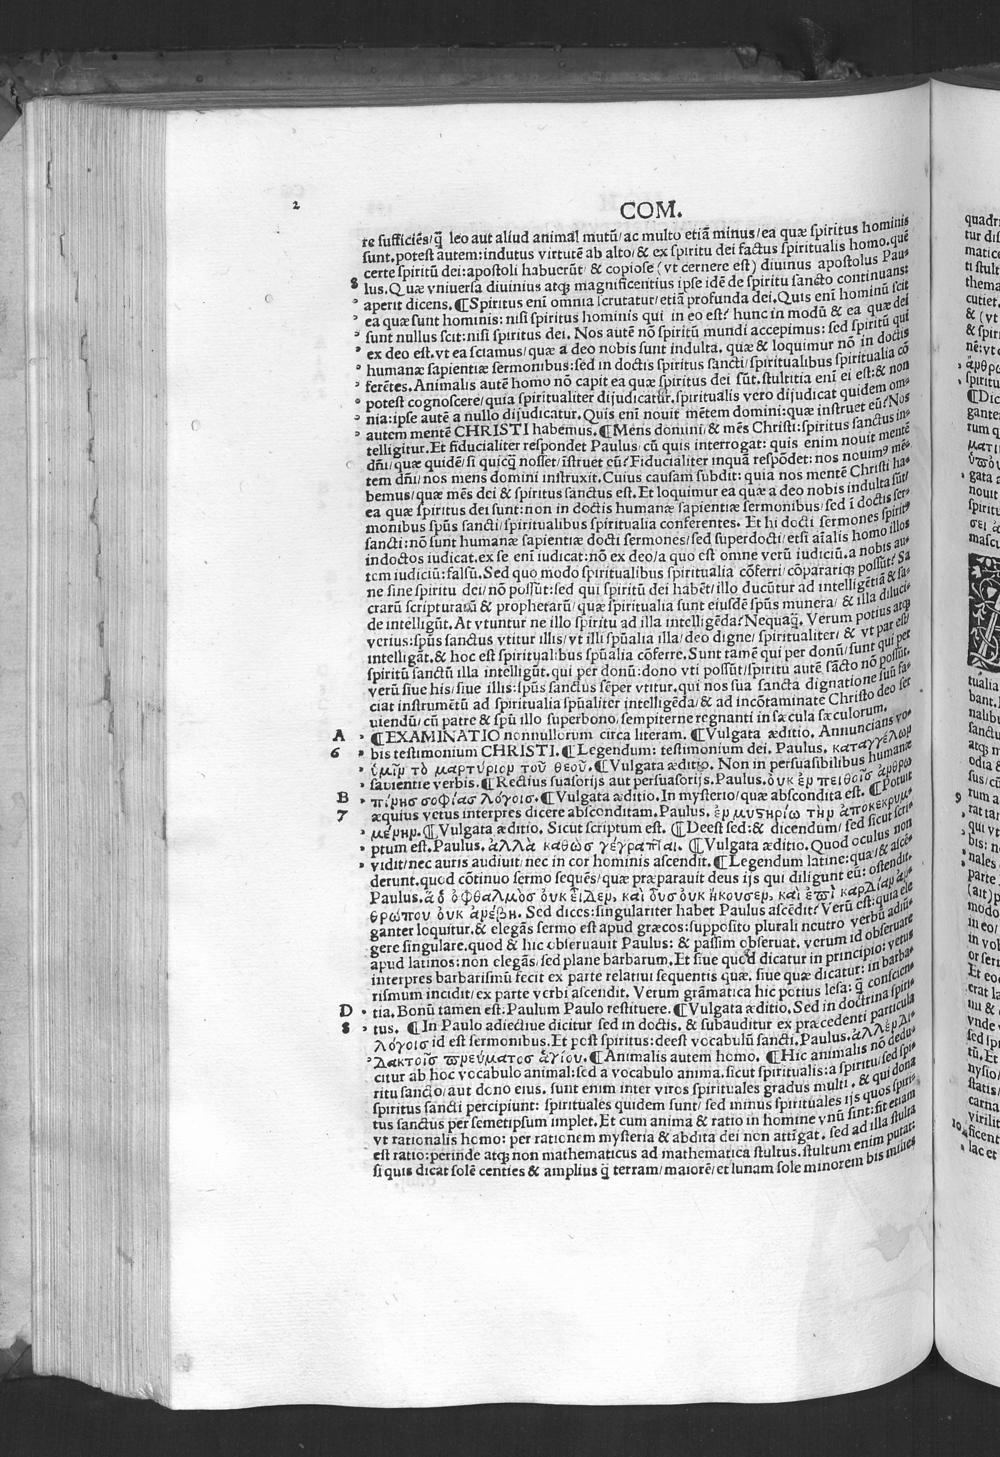 2
COM.
re sufficiēs/q̄ leo aut aliud animal mutū/ac multo etiā minus/ea quæ spiritus hominis
sunt.potest autem:indutus virtutē ab alto/& ex spiritu dei factus spiritualis homo.quē
certe spiritū dei:apostoli habuerūt/& copiose (vt cernere est) diuinus apostolus Pau⸗
8 lus.Quæ vniuersa diuinius atq; magnificentius ipse idē de spiritu sancto continuans:
aperit dicens.¶Spiritus enī omnia scrutatur/etiā profunda dei.Quis enī hominū scit
ea quæ sunt hominis: nisi spiritus hominis qui in eo est? hunc in modū & ea quæ dei
sunt nullus scit:nisi spiritus dei. Nos autē nō spiritū mundi accepimus: sed spiritū qui
ex deo est.vt ea sciamus/quæ a deo nobis sunt indulta. quæ & loquimur nō in doctis
humanæ sapientiæ sermonibus:sed in doctis spiritus sancti/spiritualibus spiritualia cō
ferētes.Animalis autē homo nō capit ea quæ spiritus dei sūt.stultitia enī ei est:& non
potest cognoscere/quia spiritualiter dijudicatur.spiritualis vero dijudicat quidem om⸗
nia:ipse autē a nullo dijudicatur.Quis enī nouit mētem domini:quæ instruet eū?Nos
autem mentē CHRISTI habemus.¶Mens domini/& mēs Christi:spiritus sanctus in⸗
telligitur.Et fiducialiter respondet Paulus/cū quis interrogat: quis enim nouit mentē
dn̄i/quæ quidē/si quicq̄ nosset/īstruet eū?Fiducialiter inquā respōdet: nos nouimꝰ mē⸗
tem dn̄i/nos mens domini instruxit.Cuius causam subdit: quia nos mentē Christi ha⸗
bemus/quæ mēs dei & spiritus sanctus est.Et loquimur ea quæ a deo nobis indulta sūt/
ea quæ spiritus dei sunt:non in doctis humanæ sapientiæ sermonibus/sed ī doctis ser⸗
monibus spūs sancti/spiritualibus spiritualia conferentes. Et hi docti sermones spiritꝰ
sancti:nō sunt humanæ sapientiæ docti sermones/sed superdocti/etsi aīalis homo illos
indoctos iudicat.ex se enī iudicat:nō ex deo/a quo est omne verū iudiciū.a nobis au⸗
tem iudiciū:falsū.Sed quo modo spiritualibus spiritualia cōferri/cōpararīq; possūt? Sa
ne sine spiritu dei/nō possūt:sed qui spiritū dei habēt/illo ducūtur ad intelligētiā & sa⸗
crarū scripturarū & prophetarū/quæ spiritualia sunt eiusdē spūs munera/ & illa diluci⸗
de intelligūt.At vtuntur ne illo spiritu ad illa intelligēda?Nequaq̄. Verum potius atq;
verius:spūs sanctus vtitur illis/vt illi spūalia illa/deo digne/spiritualiter/ & vt par est/
intelligāt.& hoc est spiritualibus spūalia cōferre.Sunt tamē qui per donū/sunt qui per
spiritū sanctū illa intelligūt.qui per donū:dono vti possūt/spiritu autē sācto nō possūt.
verū siue his/siue illis:spūs sanctus sēper vtitur.qui nos sua sancta dignatione suū fa⸗
ciat instrumētū ad spiritualia spūaliter intelligēda/& ad incōtaminate Christo deo ser
uiendū/cū patre & spū illo superbono/sempiterne regnanti in sæcula sæculorum.
A ¶EXAMINATIO nonnullorum circa literam. ¶Vulgata æditio. Annuncians vo⸗
6 bis testimonium CHRISTI.¶Legendum: testimonium dei. Paulus. καταγγέλωρ
ὑμῖρ τὸ μαρτύριορ τοῦ θεοῦ.¶Vulgata æditio. Non in persuasibilibus humanæ
sapientiæ verbis.¶Rectius suasorijs aut persuasorijs.Paulus.ὀυκ ἐρ πειθοῖσ ἀρθρω
B πίρησ σοφίασ λόγοισ.¶Vulgata æditio.In mysterio/quæ abscondita est. ¶Potuit
7 æquius vetus interpres dicere absconditam.Paulus. ἐρ μυστηρίω τὴρ ἀποκεκρυμ⸗
μέρηρ.¶Vulgata æditio. Sicut scriptum est. ¶Deest sed:& dicendum/sed sicut scri⸗
ptum est.Paulus. ἀλλὰ καθὼσ γέγραπται. ¶Vulgata æditio.Quod oculus non
vidit/nec auris audiuit/nec in cor hominis ascendit.¶Legendum latine:quæ/& ascē⸗
derunt.quod cōtinuo sermo sequēs/quæ præparauit deus ijs qui diligunt eū: ostendit.
Paulus.ἃ ὁ ὀφθαλμὸσ ὀυκ ἔιδερ, καὶ ὀυσ ὀυκ ἤκουσερ, καὶ ἐπὶ καρδίαρ ἀρ⸗
θρώπου ὀυκ ἀρέβη. Sed dices:singulariter habet Paulus ascēdit? Verū est:quia ele
ganter loquitur.& elegās sermo est apud græcos:supposito plurali neutro verbū adiū⸗
gere singulare.quod & hic obseruauit Paulus: & passim obseruat. verum id obseruare
apud latinos:non elegās/sed plane barbarum.Et siue quod dicatur in principio: vetus
interpres barbarismū fecit ex parte relatiui sequentis quæ. siue quæ dicatur: in barba⸗
rismum incidit/ex parte verbi ascendit. Verum grāmatica hic potius lesa: q̄ conscien⸗
D tia. Bonū tamen est:Paulum Paulo restituere.¶Vulgata æditio.Sed in doctrina spiri⸗
8 tus. ¶In Paulo adiectiue dicitur sed in doctis. & subauditur ex præcedenti particula
λόγοισ id est sermonibus.Et post spiritus:deest vocabulū sancti.Paulus.ἀλλ’ἐρ δι⸗
δακτοῖσ πρεύματοσ ἁγίου.¶Animalis autem homo. ¶Hic animalis nō dedu⸗
citur ab hoc vocabulo animal:sed a vocabulo anima.sicut spiritualis:a spiritu/sed spi⸗
ritu sancto/aut dono eius. sunt enim inter viros spirituales gradus multi. & qui dona
spiritus sancti percipiunt: spirituales quidem sunt/ sed minus spirituales ijs quos spiri⸗
tus sanctus per semetipsum implet.Et cum anima & ratio in homine vnū sint:fit etiam
vt rationalis homo: per rationem mysteria & abdita dei non attīgat. sed ad illa stulta
est ratio:perinde atq; non mathematicus ad mathematica stultus.stultum enim putat:
si quis dicat solē centies & amplius q̄ terram/maiorē/et lunam sole minorem bis milies